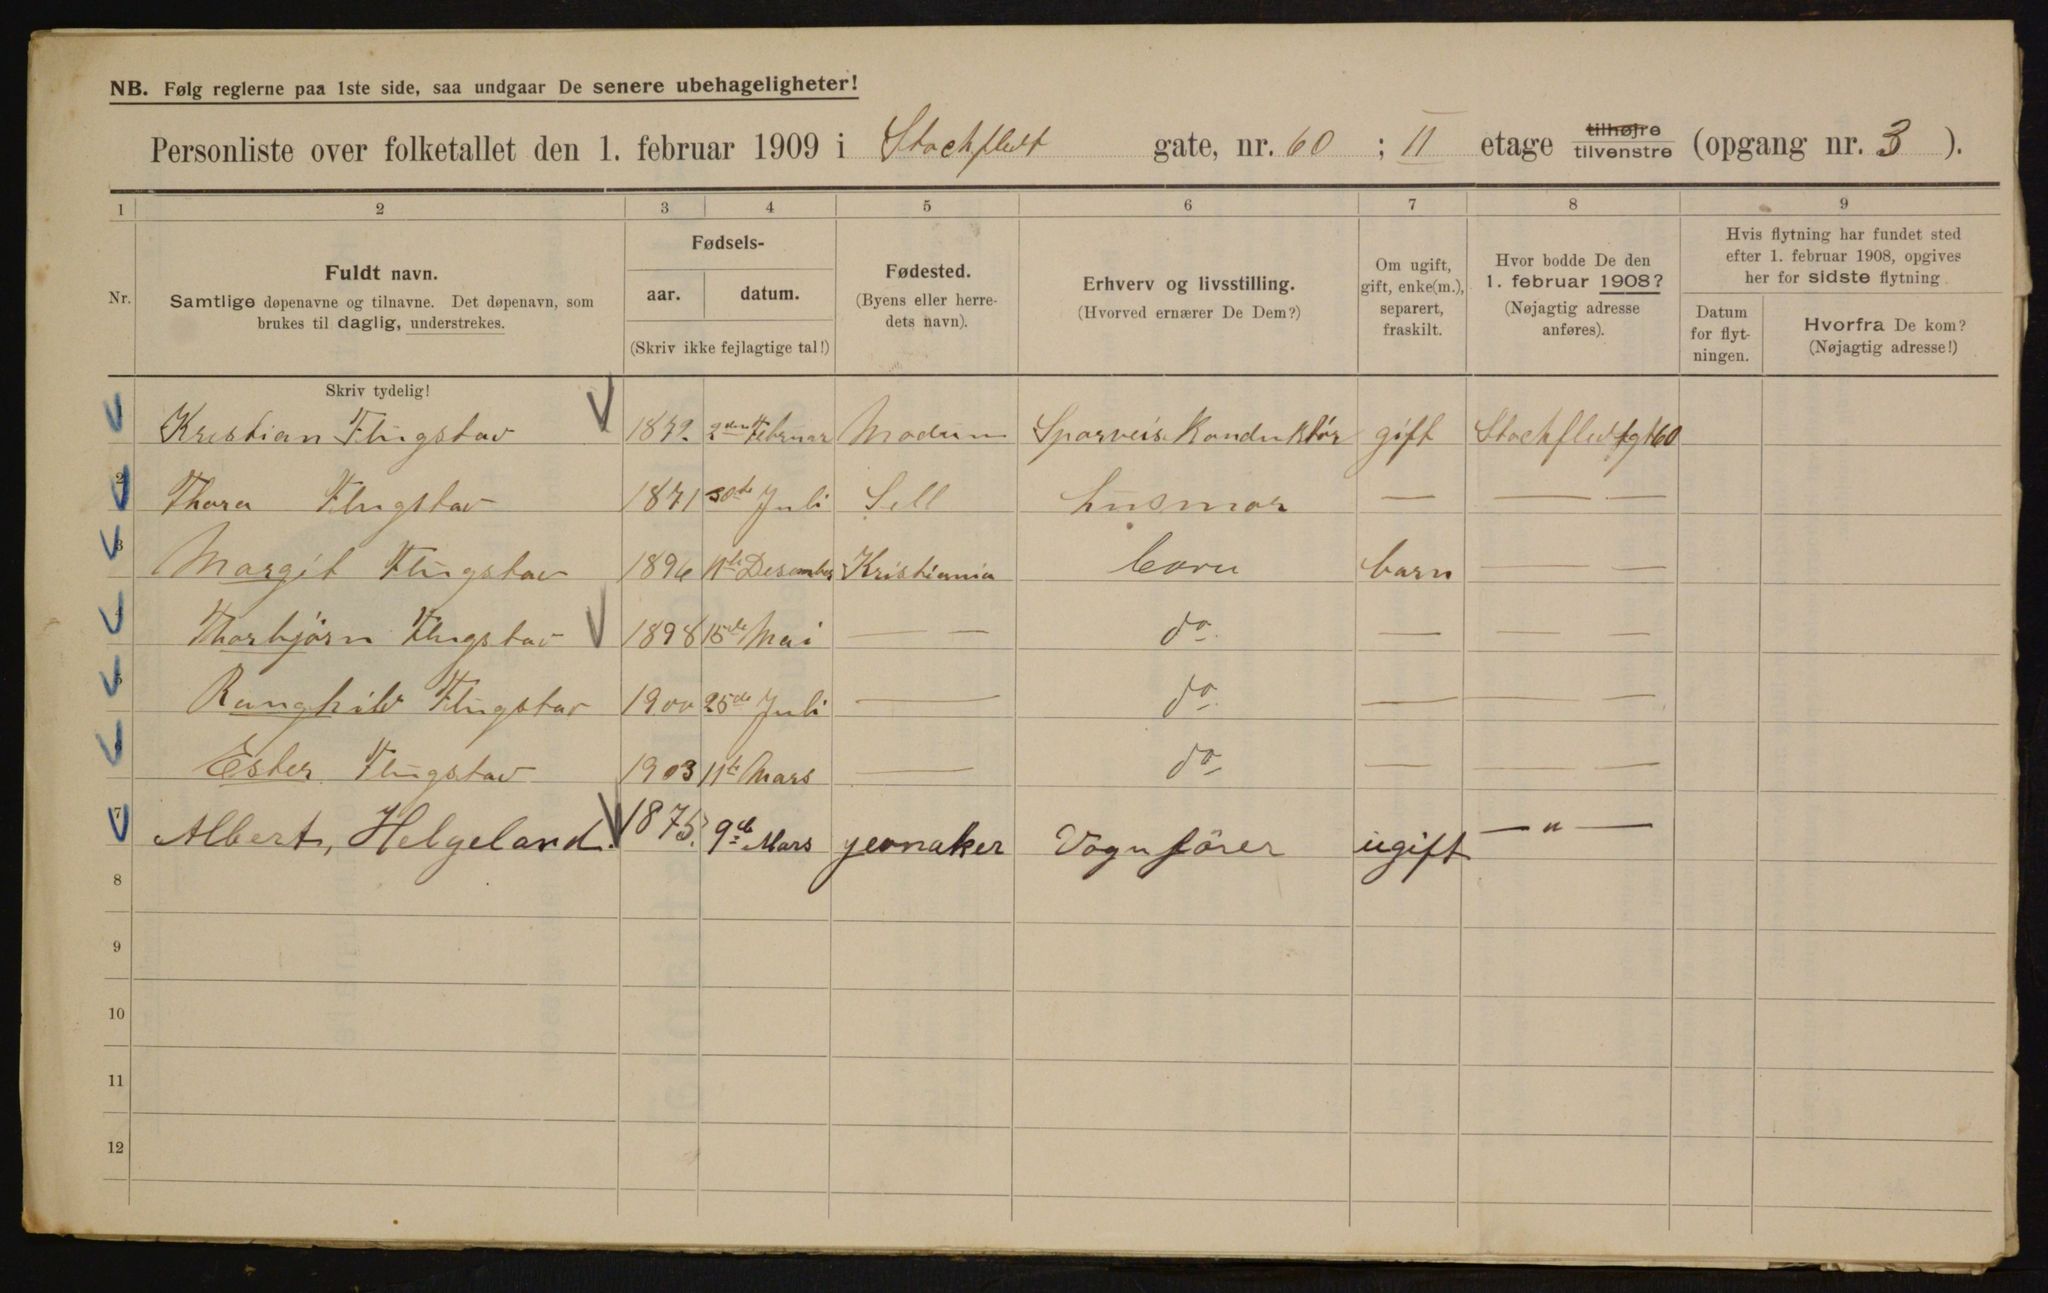 NB. Følg reglerne paa 1ste side, saa undgaar De senere ubehageligheter!
Personliste over folketallet den 1. februar 1909 i Stockfledt gate, nr. 60 ; II etage tilhøjre tilvenstre (opgang nr. 3 ).
1 2 3 4 5 6 7 8 9
Nr.
Fuldt navn.
Samtlige døpenavne og tilnavne. Det døpenavn, som
brukes til daglig, understrekes.
Fødsels-
aar. datum.
(Skriv ikke fejlagtige tal!)
Fødested.
(Byens eller herre-
dets navn).
Erhverv og livsstilling.
(Hvorved ernærer De Dem?)
Om ugift,
gift, enke(m.),
separert,
fraskilt.
Hvor bodde De den
1. februar 1908?
(Nøjagtig adresse
anføres).
Hvis flytning har fundet sted
efter 1. februar 1908, opgives
her for sidste flytning
Datum
for flyt-
ningen.
Hvorfra De kom?
(Nøjagtig adresse!)
Skriv tydelig!
Kristian Flugstav 1872. 2den Februar Modum Sporveis Konduktör gift Stockfledtgt 60
2 Thora Flugstav 1871 30te Juli Sell Husmor — — —
3 Margit Flugstav 1896 11te Desember Kristiania barn barn — —
Thorbjörn Flugstav 1898 15de Mai — — do — — —
5 Ranghild Flugstav 1900 25de Juli — do — — —
Ester Flugstav 1903 11te Mars — do — — —
7 Albert, Helgeland. 1875. 9de Mars jevnaker Vognförer ugift — " —
8
9
10
11
12